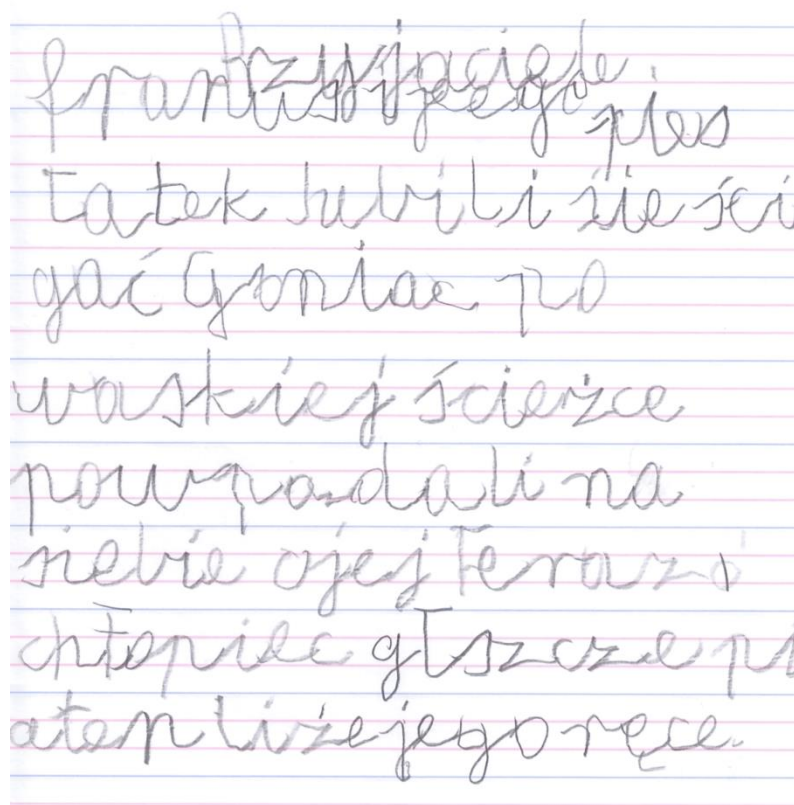 Przyjaciele
franuś i jego pies
Łatek lubili śie ści
gać Goniac po
waskiej ścieżce
powpadali na
siebie ojej Teraz
chłopiec głszcze pi
aten liże jego ręce.